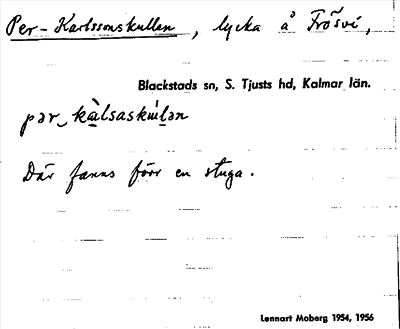 Per-Karlssonskullen, lycka å Frösvi,
Blackstads sn, S. Tjusts hd, Kalmar län.
pər‿kàlsaskulən
Där fanns förr en stuga.
Lennart Moberg 1954, 1956